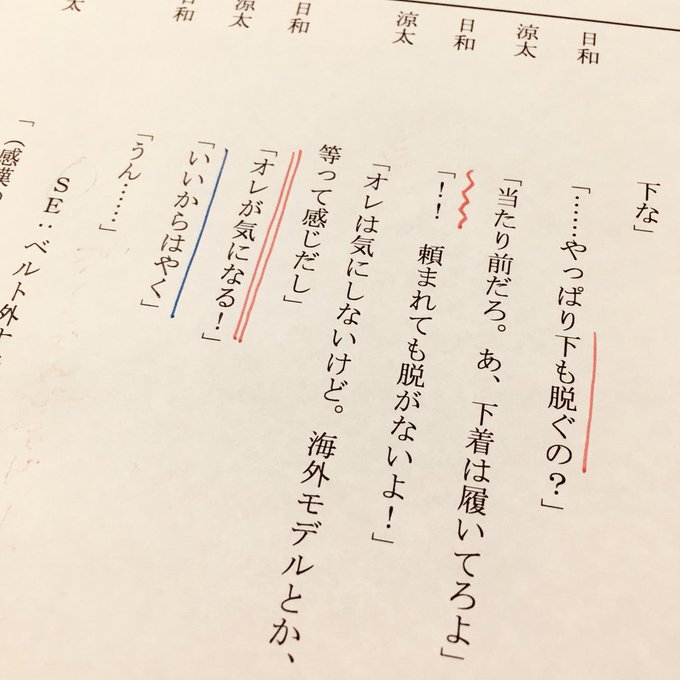 下な」
日和　「……やっぱり下も脱ぐの？」
涼太　「当たり前だろ。あ、下着は履いてろよ」
日和　「！！　頼まれても脱がないよ！」
涼太　「オレは気にしないけど。海外モデルとか、
等って感じだし」
日和　「オレが気になる！」
涼太　「いいからはやく」
日和　「うん……」
ＳＥ：ベルト外
太　「（感